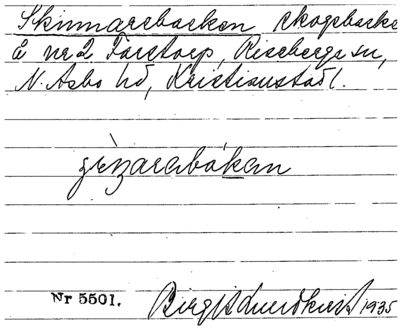 Skinnarebacken skogsbacke
E nr 2 Färstorp, Riseberga sn,
N. Åsbo hd, Kristianstads l.
Nr 5501.
Birgit Lundkvist 1935